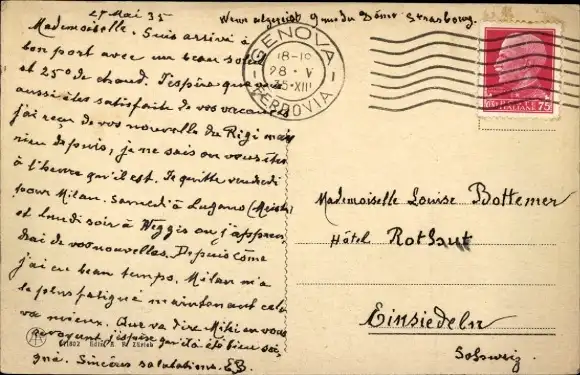 27 Mai 35
Mademoiselle. Suis arrivé à
bon port avec un beau soleil
et 25° de chaud. J'espère que vous
aussi êtes satisfaite de vos vacances
j'ai reçu de vos nouvelle du Rigi mais
rien depuis, je ne sais ou vous êtes
à l'heure qu'il est. Je quitte vendredi
pour Milan. Samedi à Lugano
et Lundi soir à Weggis ou j'appren
drai de vos nouvelles. Depuis Côme
j'ai eu beau temps. Milan m'a
le plus fatigué maintenant cela
va mieux. Que va dire en vous
revoyant j'espère qu'il a été bien soi
gné. Sincères salutations. EB.
9 rue du Dôme Strasbourg.
GENOVA
18-19
28 · V
35 · XIII
FERROVIA
ITALIANE
75
Mademoiselle Louise Bottemer
Hôtel Rothaut
Einsiedeln
Schweiz.